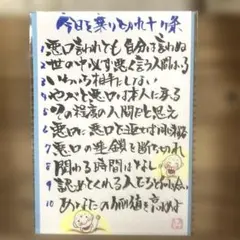 今日を乗りきれ十ヶ条
1 悪口言われても自分は言わぬ
2 世の中必ず悪く言う人間いる
3 いちいち相手にしない
4 やがて悪口は本人に戻る
5 その程度の人間だと思え
6 悪口に悪口を返せば同格
7 悪口の連鎖を断ち切れ
8 関わる時間はなし
9 認めてくれる人とだけ付合い
10 あなたの価値を高めよ